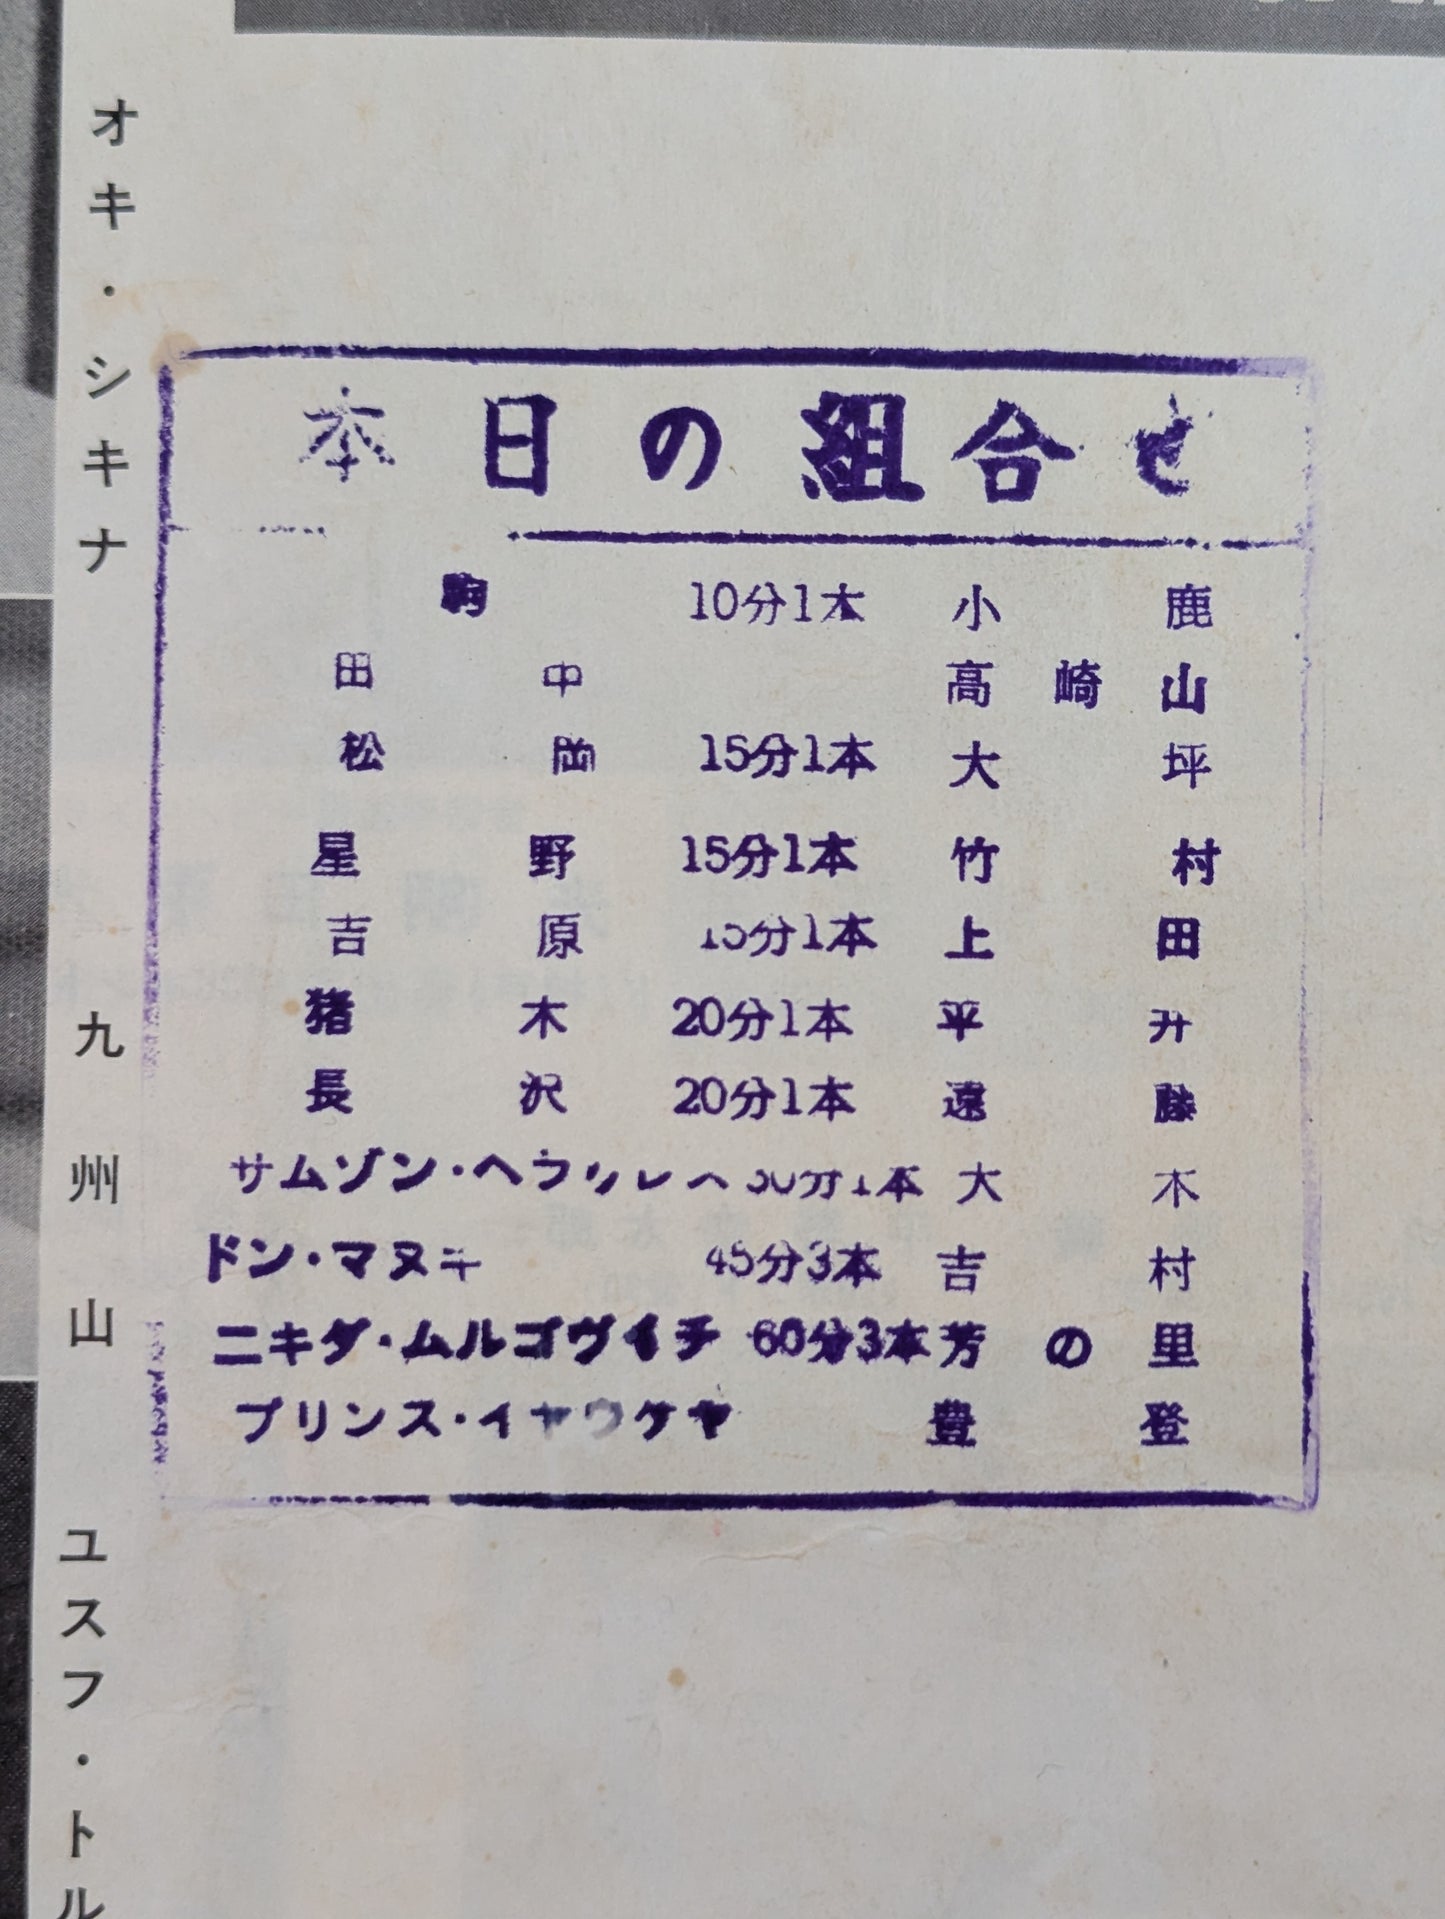 オキ・シキナ
九州山
ユスフ・トル
本日の組合せ
駒 10分1本 小鹿
田中 高崎山
松岡 15分1本 大坪
星野 15分1本 竹村
吉原 15分1本 上田
猪木 20分1本 平井
長沢 20分1本 遠藤
サムゾン・ヘ 30分1本 大木
ドン・マヌキ 45分3本 吉村
ニキタ・ムルゴヴイチ 60分3本 芳の里
プリンス・イヤウケヤ 豊登